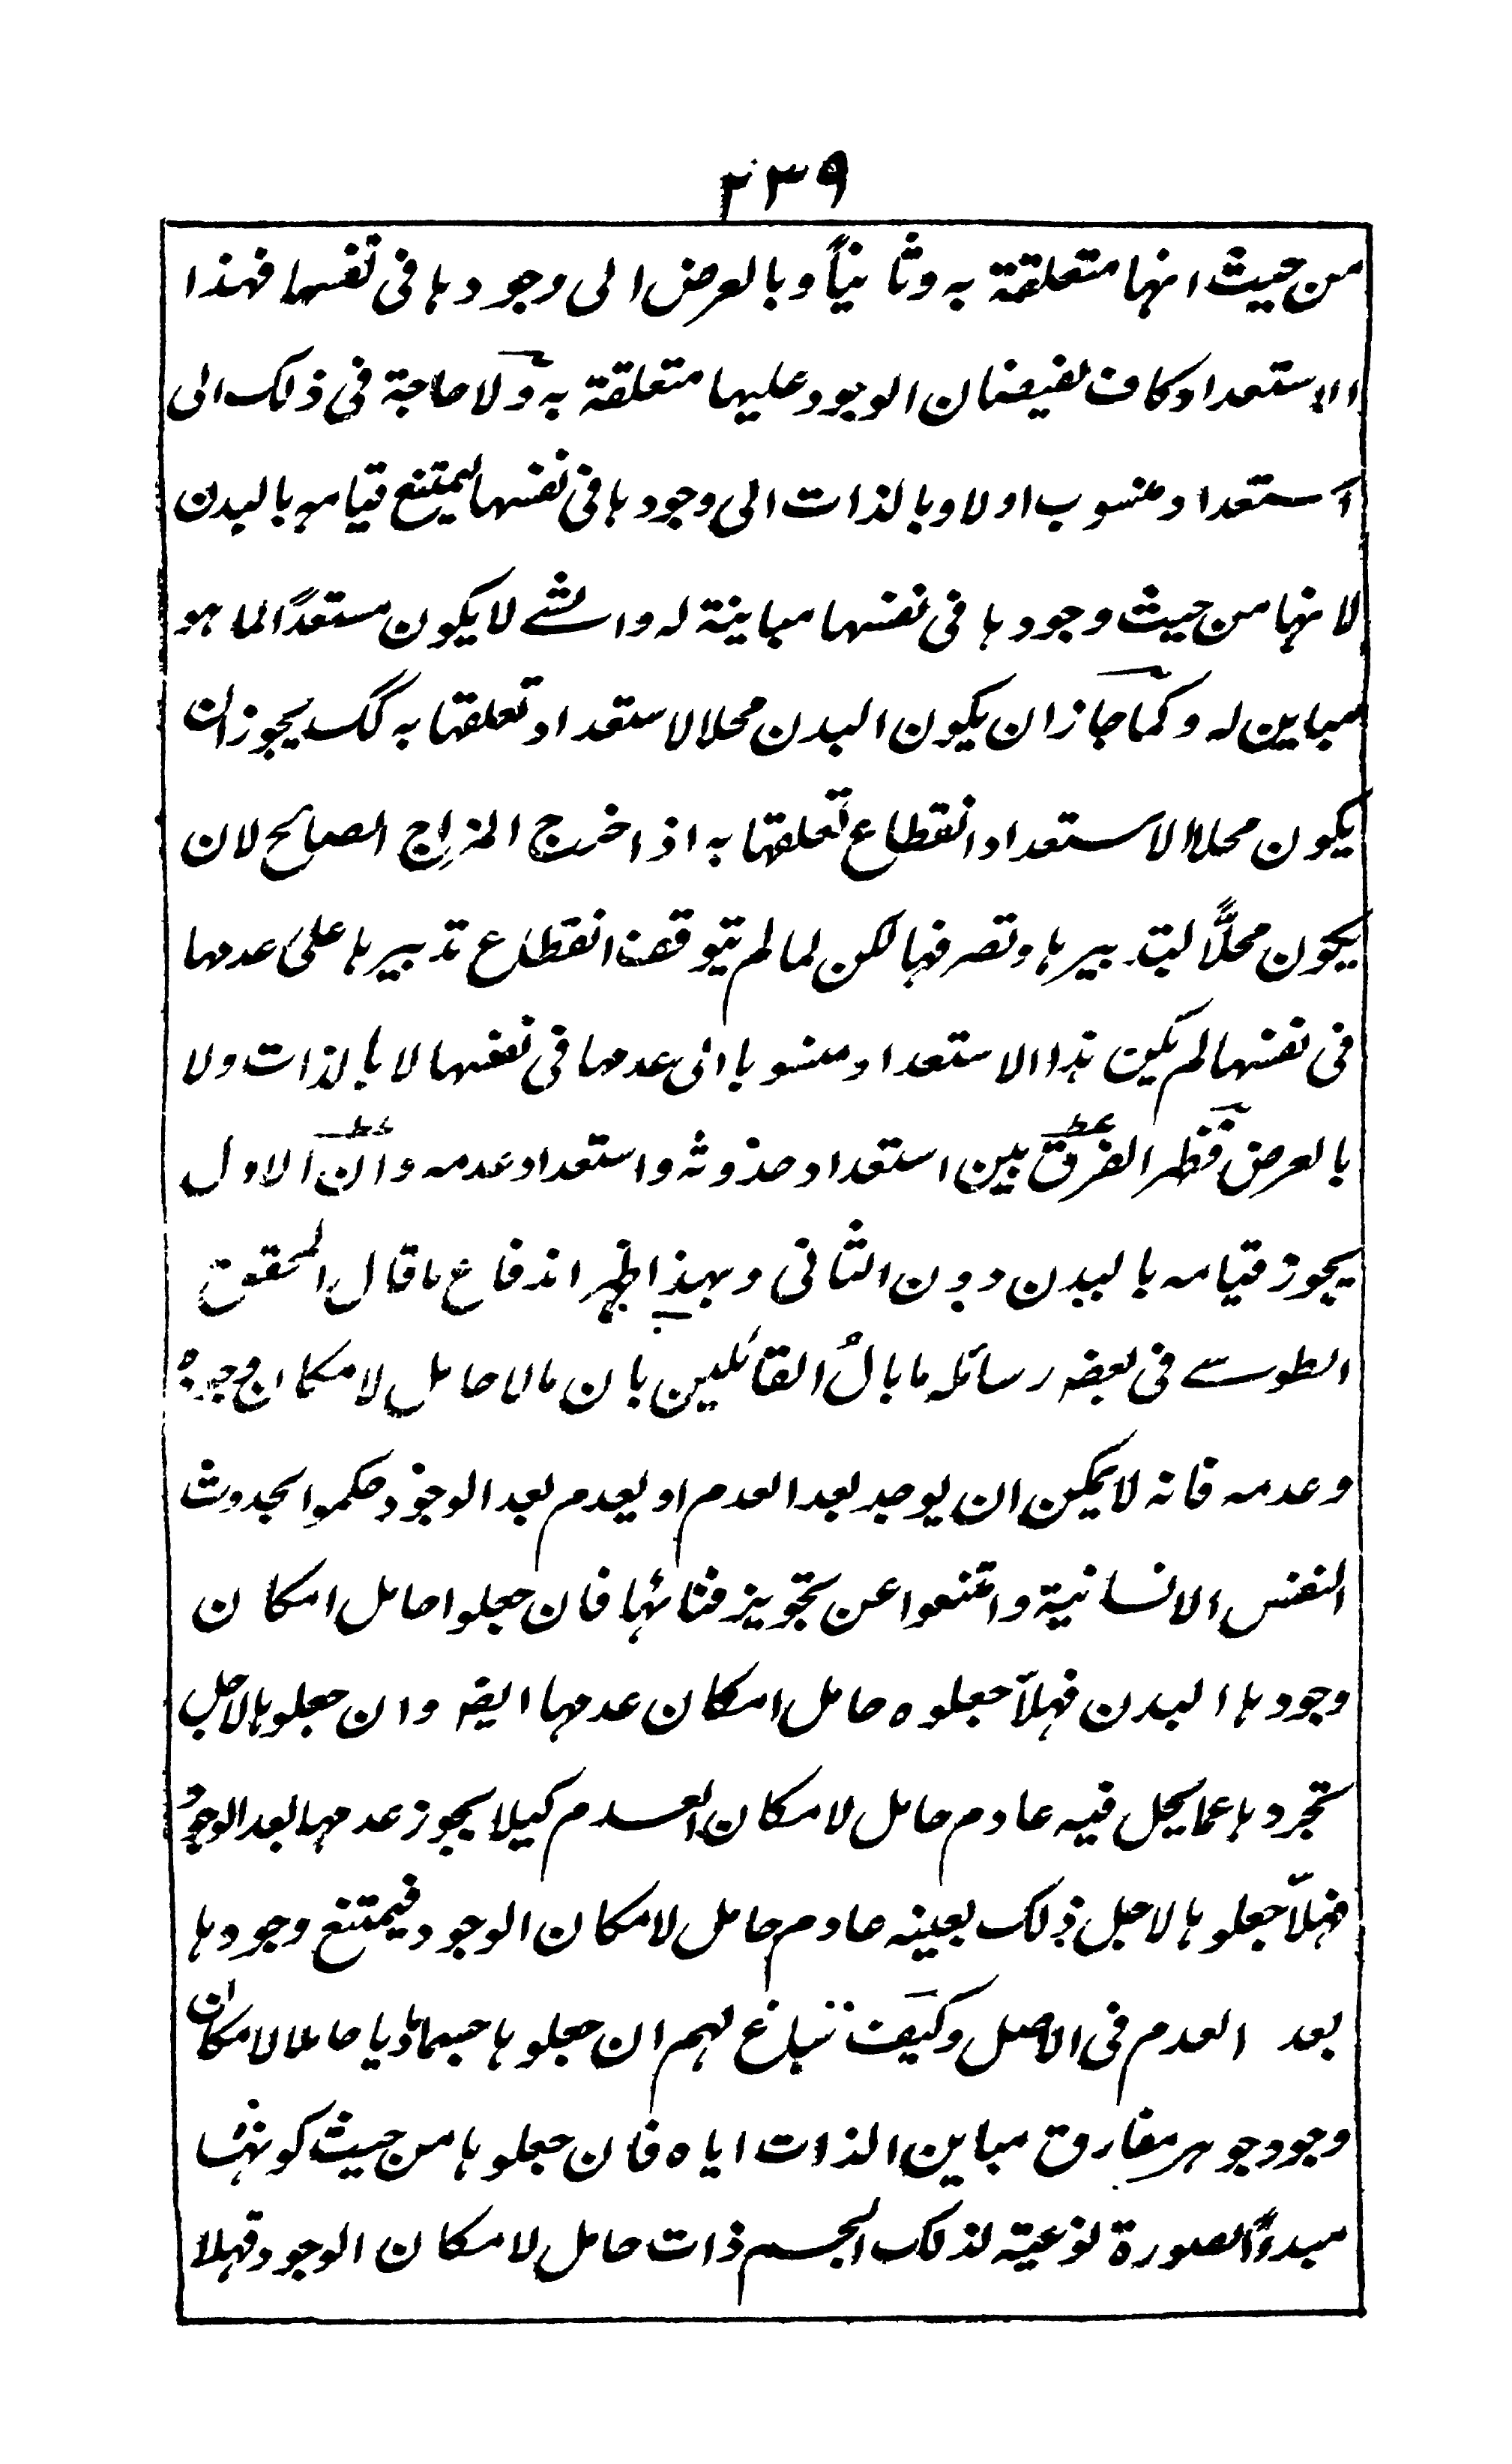 ٢٣٩
من حيث انها متعلقة به وثانياً وبالعرض الى وجودها فى نفسها فهذا
الاستعداد كاف لفيضان الوجود عليها متعلقة به ولا حاجة فى ذلك الى
استعداد منسوب اولا وبالذات الى وجودها فى نفسها ليمتنع قيامه بالبدن
لانها من حيث وجودها فى نفسها مباينة له والشے لا يكون مستعدًا لما هو
مباين له وكما جاز ان يكون البدن محلا لاستعداد تعلقها به كك يجوز ان
يكون محلا لاستعداد انقطاع تعلقها به اذا خرج المزاج الصالح لان
يكون محلًّا لتدبيرها وتصرفها لكن لما لم يتوقف انقطاع تدبيرها على عدمها
فى نفسها لم يكن هذا الاستعداد منسوبا الى عدمها فى نفسها لا بالذات ولا
بالعرض فظهر الفرق بين استعداد حدوثه واستعداد عدمه وان الاول
يجوز قيامه بالبدن دون الثانى وبهذا ظهر اندفاع ما قال المحقق
الطوسے فى بعض رسائله ما بالُ القائلين بان مالا حامل لامكان وجوده
وعدمه فانه لا يمكن ان يوجد بعد العدم او يعدم بعد الوجود حكموا بحدوث
النفس الانسانية وامتنعوا عن تجويز فنائها فان جعلوا حامل امكان
وجودها البدن فهلّا جعلوه حامل امكان عدمها ايضا وان جعلوها لاجل
تجردها عما يحل فيه عادم حامل لامكان العدم كيلا يجوز عدمها بعد الوجود
فهلّا جعلوها لاجل ذلك بعينه عادم حامل لامكان الوجود فيمتنع وجودها
بعد العدم فى الاصل وكيف ساغ لهم ان جعلوها جسما ماديا حاملا لامكان
وجود جوهر مفارق مباين الذات اياه فان جعلوها من حيث كونها
مبدءً الصورة نوعية لذلك الجسم ذات حامل لامكان الوجود فهلا